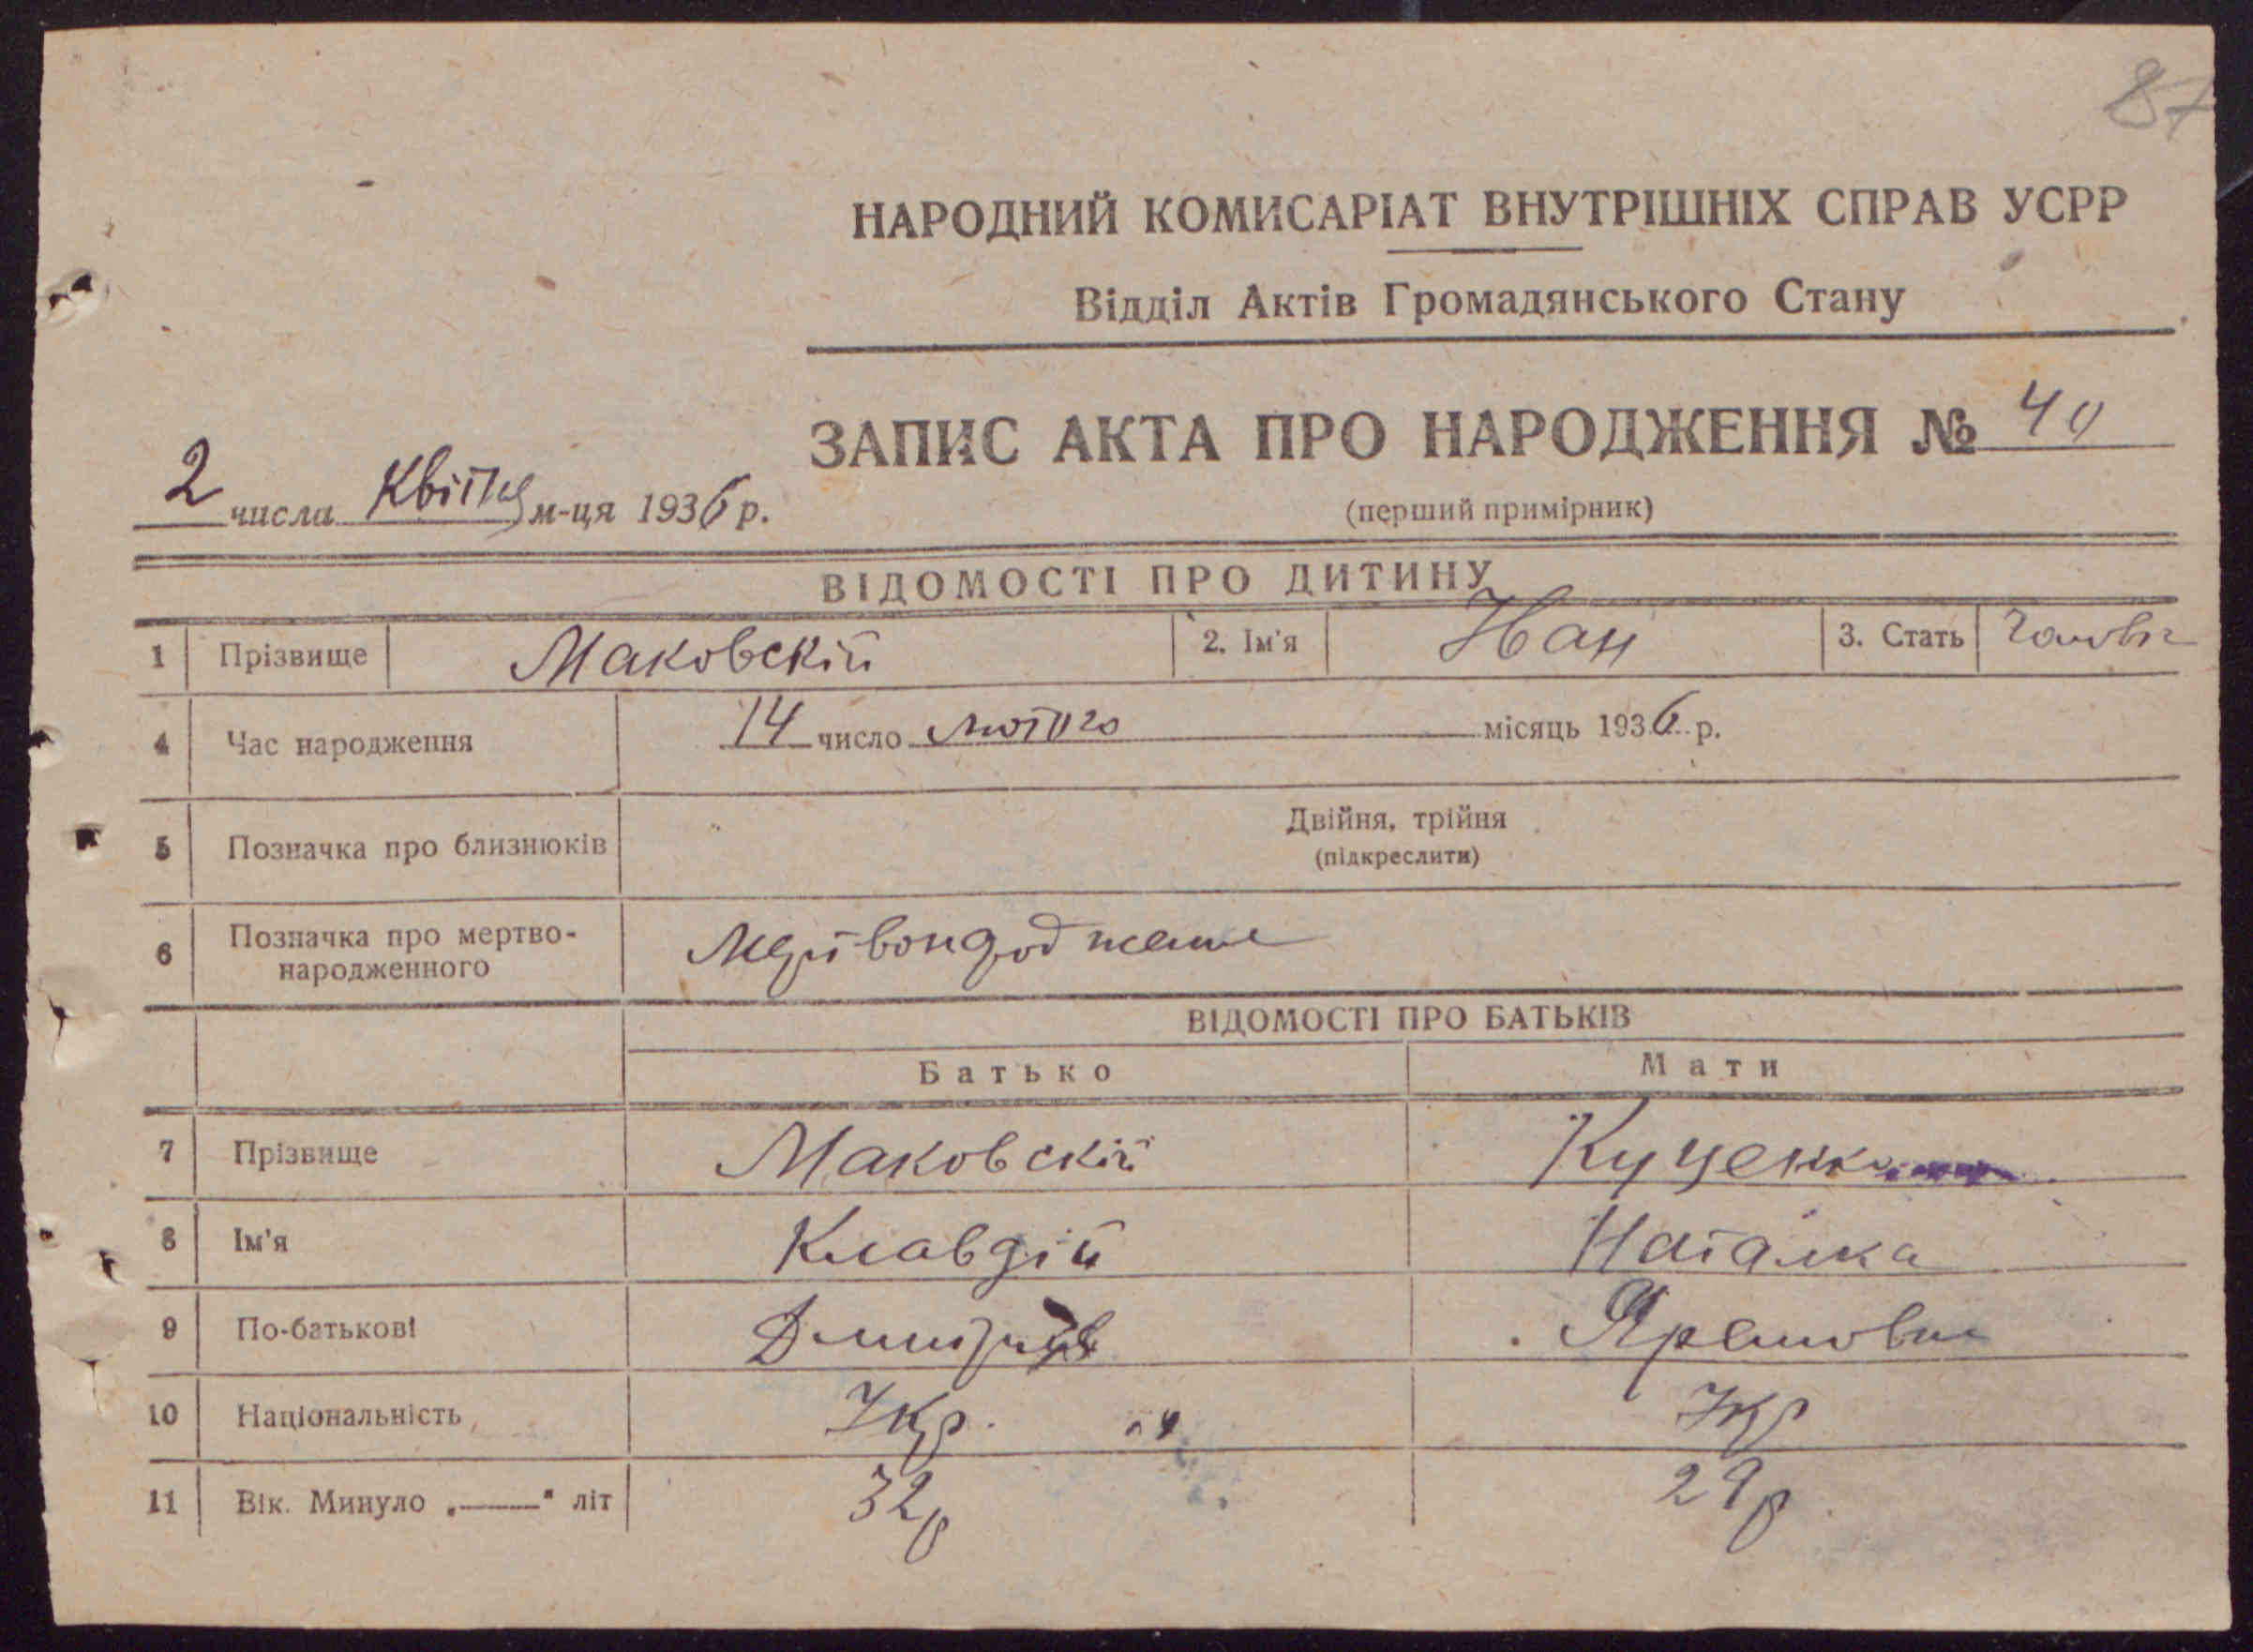 87
НАРОДНИЙ КОМИСАРІАТ ВНУТРІШНІХ СПРАВ УСРР
Відділ Актів Громадянського Стану
ЗАПИС АКТА ПРО НАРОДЖЕННЯ № 40
2 числа Квітня м-ця 1936 р.
(перший примірник)
ВІДОМОСТІ ПРО ДИТИНУ
1 Прізвище Маковскій 2. Ім'я Иван 3. Стать
4 Час народження 14 число Лютого місяць 1936 р.
5 Позначка про близнюків Двійня, трійня
(підкреслити)
6 Позначка про мертво-
народженного
ВІДОМОСТІ ПРО БАТЬКІВ
Батько Мати
7 Прізвище Маковскій Куценко
8 Ім'я Клавдій Наталка
9 По-батькові
10 Національність Укр. Укр
11 Вік. Минуло „——" літ 32р 29р